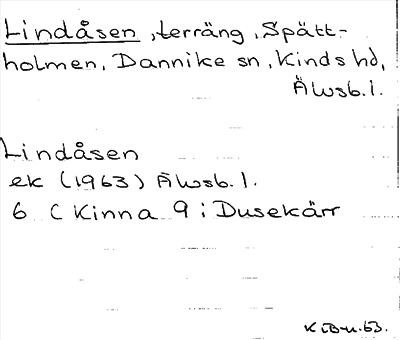 Lindåsen, terräng, Spätt-
holmen, Dannike sn, Kinds hd,
Älvsb. l.
Lindåsen
ek (1963) Älvsb. l.
6 C Kinna 9 i Dusekärr